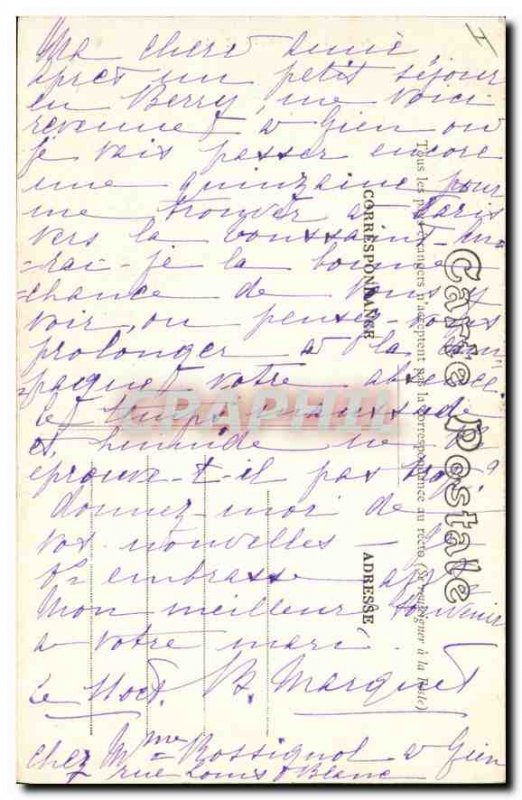 Ma chère amie,
après un petit séjour
en Berry, me voici
revenue à Gien où
je vais passer encore
une quinzaine pour
me trouver à Paris
vers la Toussaint
rai-je la bonne
chance de vous y
voir, ou pensez-vous
prolonger à la cam
pagne votre absence.
Le temps maussade
et humide ne
éprouve-t-il pas trop?
Donnez-moi de
vos nouvelles
embrasse
Mon meilleur souvenir
à votre mari.
Le 11 oct. B. Marquet
chez Mme Rossignol à Gien
rue Louis Blanc
Carte Postale
Tous les pays étrangers n'acceptent pas la correspondance au recto (Se renseigner à la Poste)
CORRESPONDANCE
ADRESSE
CPAPHIL